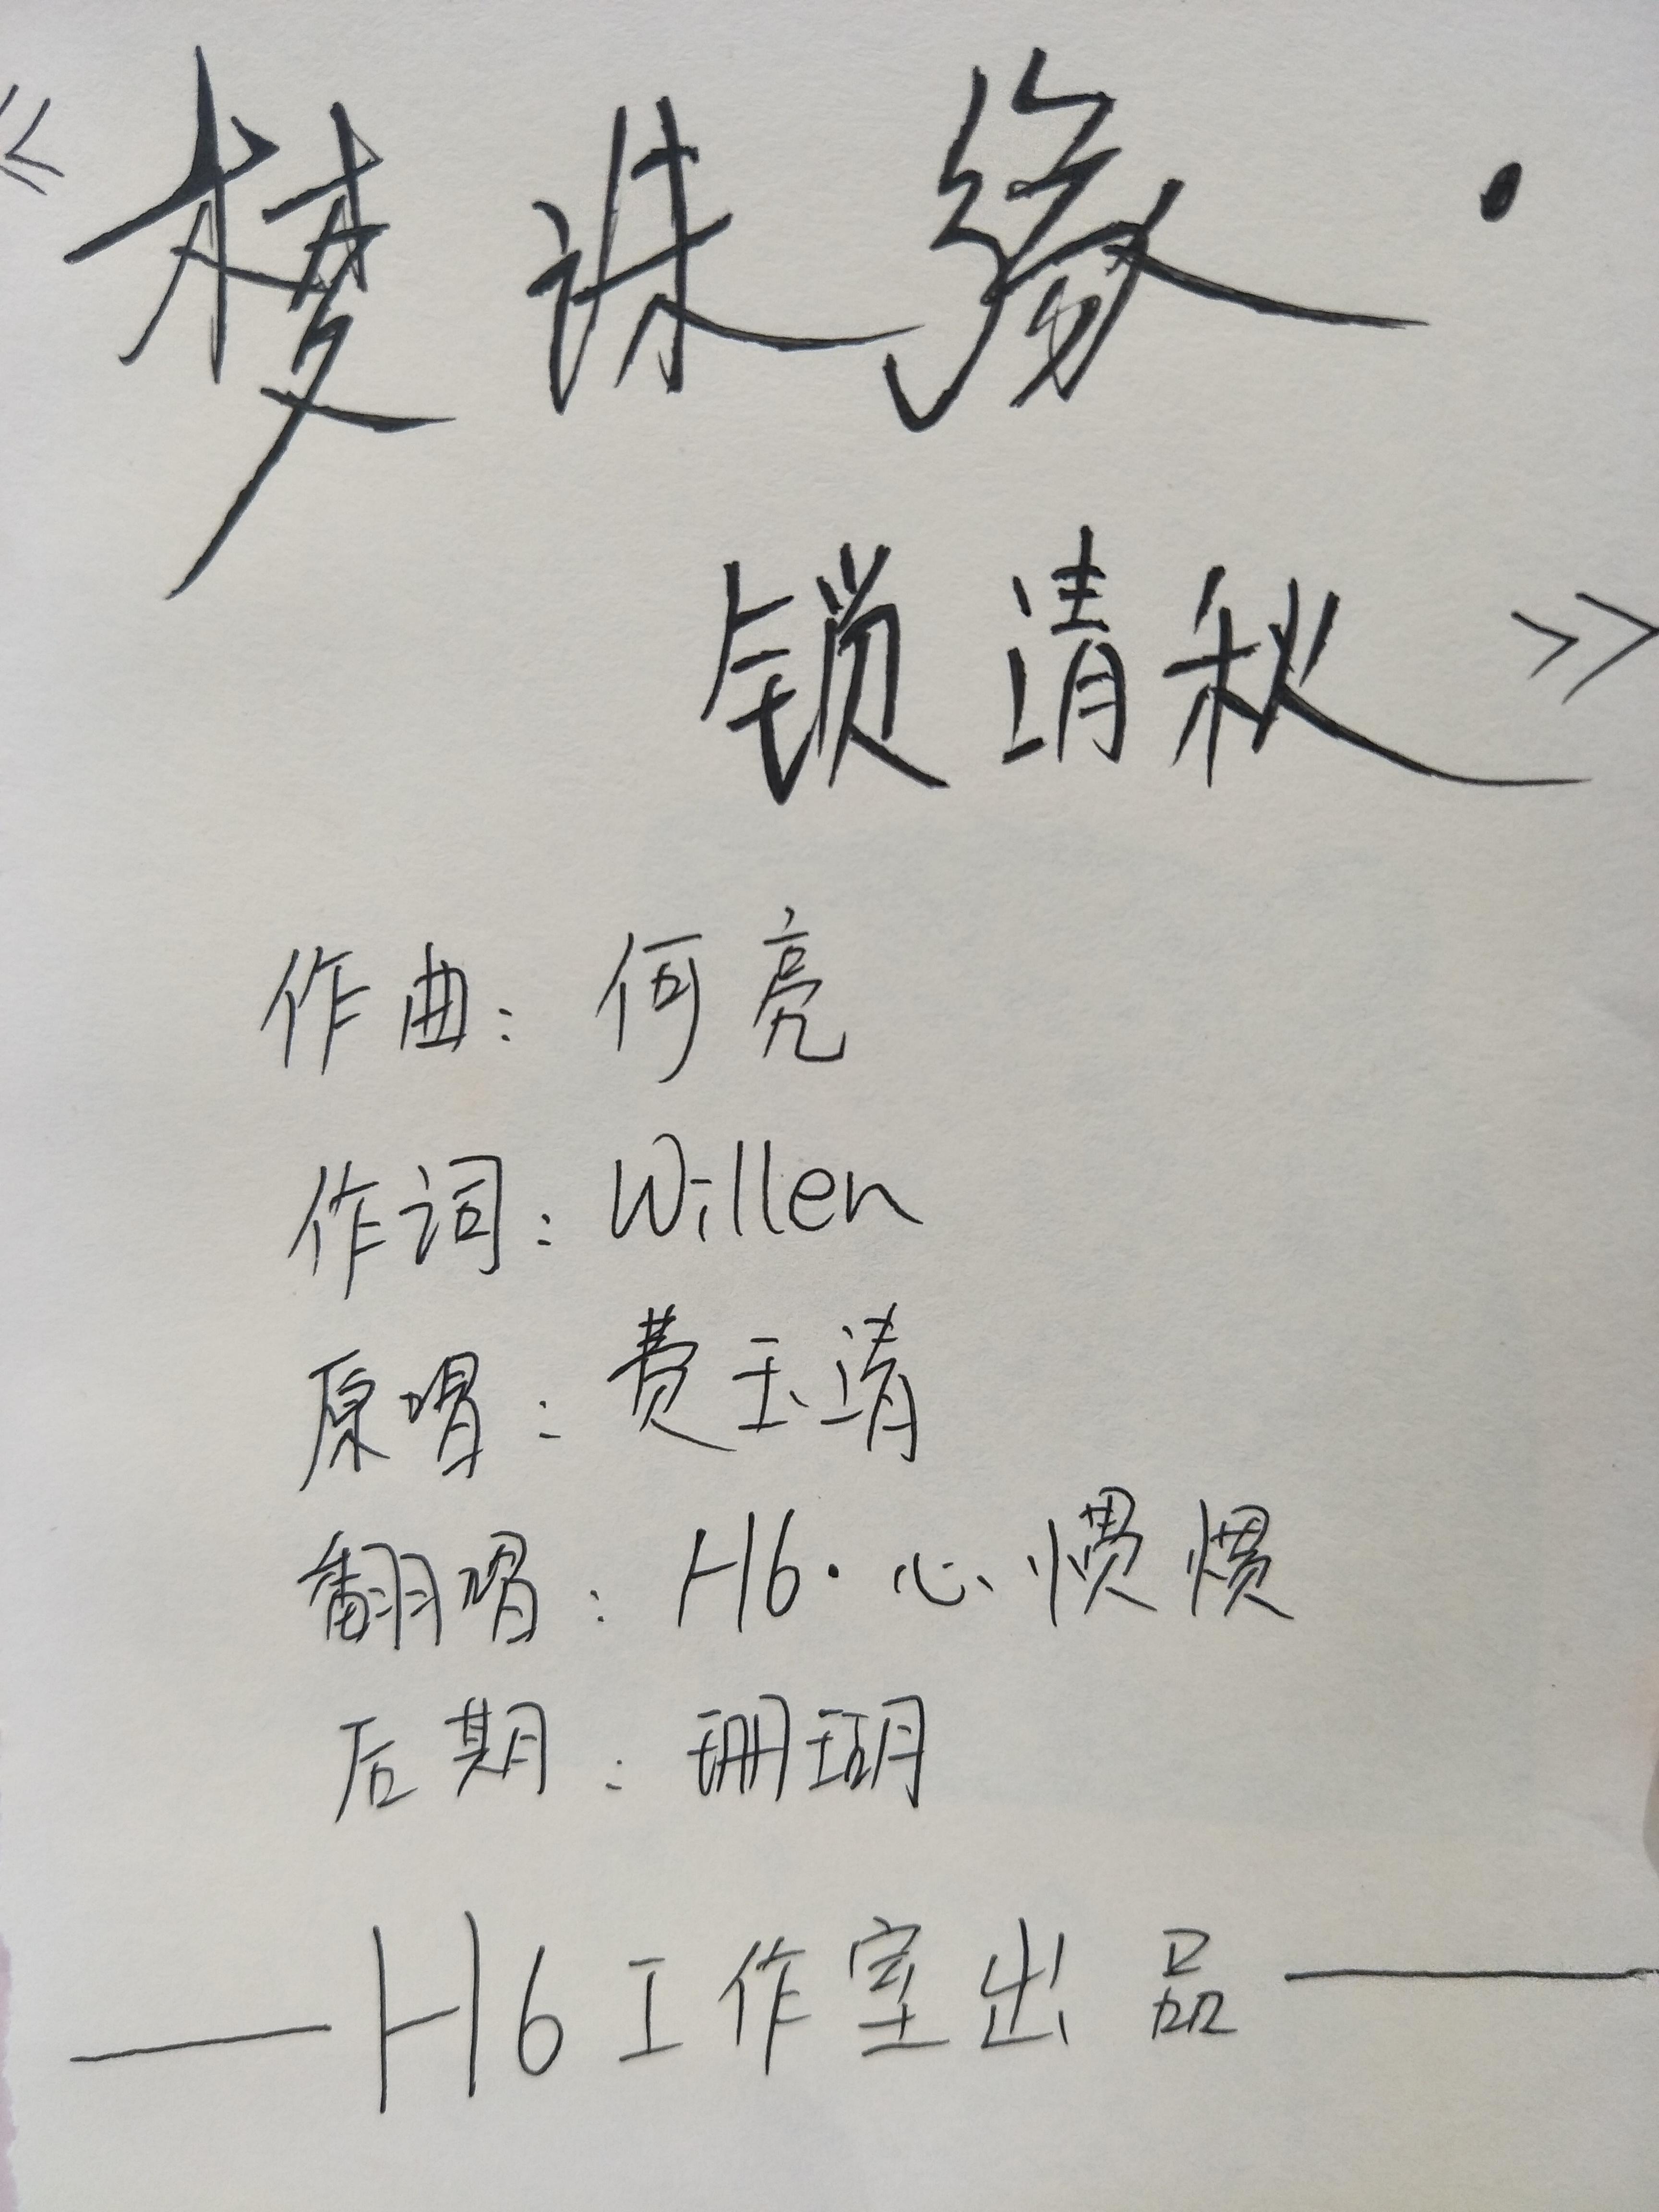 《楼诛缘·
锁清秋》
作曲：何亮
作词：Willen
原唱：费玉清
翻唱：H6·心惯惯
后期：珊瑚
——H6工作室出品——